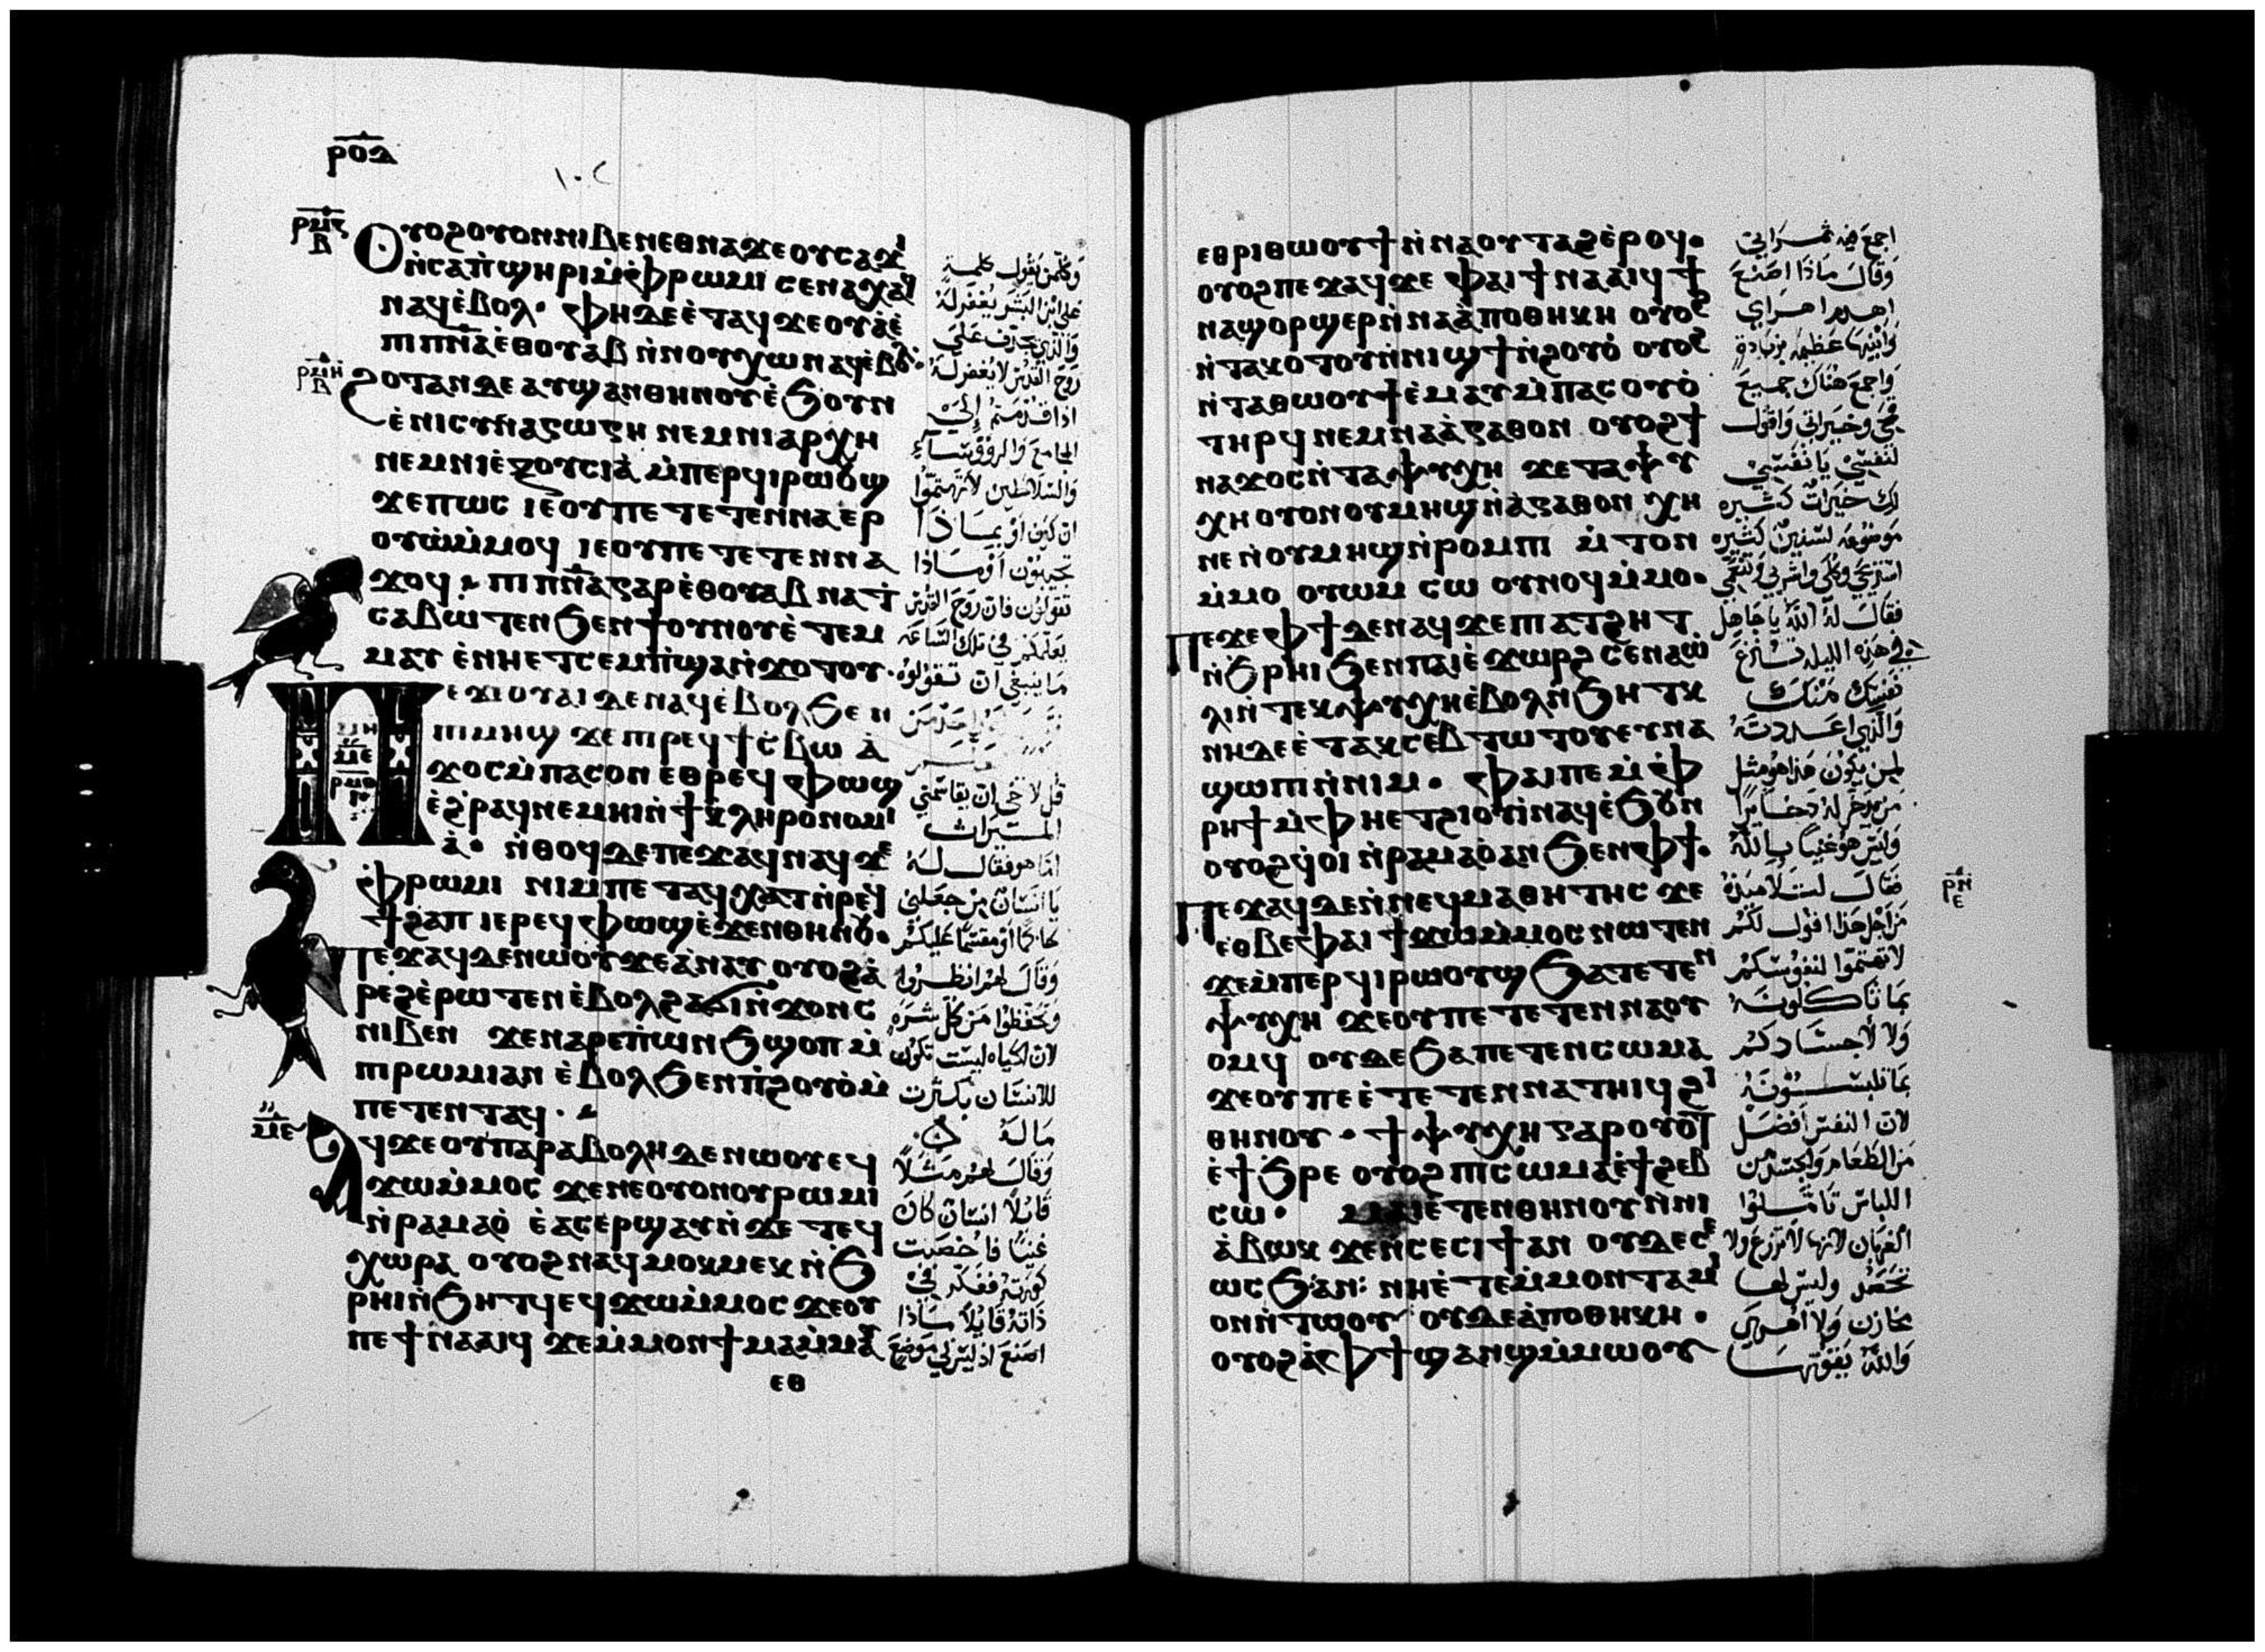 ⲣⲟⲇ
ⲣⲙⲍ
ⲃ
ⲟⲩⲟϩ ⲟⲩⲟⲛ ⲛⲓⲃⲉⲛ ⲉⲑⲛⲁϫⲉ ⲟⲩⲥⲁϫⲓ
ⲛ̀ⲥⲁ ⲡ̀ϣⲏⲣⲓ ⲙ̀ⲫⲣⲱⲙⲓ ⲥⲉⲛⲁⲭⲁⲥ
ⲛⲁϥ ⲉ̀ⲃⲟⲗ· ⲫⲏ ⲇⲉ ⲉ̀ⲧⲁϥϫⲉⲟⲩⲁ̀ ⲉ̀
ⲡⲓⲡⲛ̅ⲁ̅ ⲉ̀ⲑⲟⲩⲁⲃ ⲛ̀ⲛⲟⲩⲭⲱ ⲛⲁϥ ⲉ̀ⲃⲟⲗ·
ⲣⲙⲏ
ⲃ
ϩⲟⲧⲁⲛ ⲇⲉ ⲁⲩϣⲁⲛⲑⲏⲛⲟⲩ ⲉ̀ϧⲟⲩⲛ
ⲉ̀ⲛⲓⲥⲩⲛⲁⲅⲱⲅⲏ ⲛⲉⲙ ⲛⲓⲁⲣⲭⲏ
ⲛⲉⲙ ⲛⲓⲉ̀ⲝⲟⲩⲥⲓⲁ̀ ⲙ̀ⲡⲉⲣϥⲓⲣⲱⲟⲩϣ
ϫⲉ ⲡⲱⲥ ⲓⲉ ⲟⲩ ⲡⲉⲧⲉⲧⲉⲛⲛⲁⲉⲣ
ⲟⲩⲱ̀ ⲙ̀ⲙⲟϥ ⲓⲉ ⲟⲩ ⲡⲉⲧⲉⲧⲉⲛⲛⲁ
ϫⲟϥ ⲡⲓⲡⲛ̅ⲁ̅ ⲅⲁⲣ ⲉ̀ⲑⲟⲩⲁⲃ ⲛⲁϯ
ⲥⲁⲃⲱⲧⲉⲛ ϧⲉⲛ ϯⲟⲩⲛⲟⲩ ⲉ̀ⲧⲉⲙ
ⲙⲁⲩ ⲉ̀ⲛⲏⲉⲧⲥⲉⲙⲡ̀ϣⲁ ⲛ̀ϫⲟⲧⲟⲩ·
ⲡⲉϫⲉ ⲟⲩⲁⲓ ⲇⲉ ⲛⲁϥ ⲉ̀ⲃⲟⲗ ϧⲉⲛ
ⲡⲓⲙⲏϣ ϫⲉ ⲡⲓⲣⲉϥϯⲥ̀ⲃⲱ ⲁ̀
ϫⲟⲥ ⲙ̀ⲡⲁⲥⲟⲛ ⲉⲑⲣⲉϥⲫⲱϣ
ⲉϩⲣⲁϥ ⲛⲉⲙⲏⲓ ⲛ̀ϯⲕⲗⲏⲣⲟⲛⲟⲙⲓ
ⲁ̀· ⲛ̀ⲑⲟϥ ⲇⲉ ⲡⲉϫⲁϥ ⲛⲁϥ ϫⲉ
ⲫⲣⲱⲙⲓ ⲛⲓⲙ ⲡⲉⲧⲁϥⲭⲁⲧ ⲛ̀ⲣⲉϥ
ϯϩⲁⲡ ⲓⲉ ⲣⲉϥⲫⲱϣ ⲉ̀ϫⲉⲛ ⲑⲏⲛⲟⲩ·
ⲡⲉϫⲁϥ ⲇⲉ ⲛⲱⲟⲩ ϫⲉ ⲁ̀ⲛⲁⲩ ⲟⲩⲟϩ ⲁ̀
ⲣⲉϩ ⲉ̀ⲣⲱⲧⲉⲛ ⲉ̀ⲃⲟⲗ ϩⲁ ϭⲓⲛ̀ϫⲟⲛⲥ
ⲛⲓⲃⲉⲛ ϫⲉ ⲛⲁⲣⲉ ⲡ̀ⲱⲛϧ ϣⲟⲡ ⲙ̀
ⲡⲓⲣⲱⲙⲓ ⲁⲛ ⲉ̀ⲃⲟⲗ ϧⲉⲛ ⲡ̀ϩⲟⲩⲟ̀ ⲙ̀
ⲡⲉⲧⲉⲛⲧⲁϥ·
ⲙⲉ
ⲁϥϫⲉ ⲟⲩⲡⲁⲣⲁⲃⲟⲗⲏ ⲇⲉ ⲛⲱⲟⲩ ⲉϥ
ϫⲱⲙ̀ⲙⲟⲥ ϫⲉ ⲛⲉ ⲟⲩⲟⲛ ⲟⲩⲣⲱⲙⲓ
ⲛ̀ⲣⲁⲙⲁⲟ̀ ⲉ̀ⲁⲥⲉⲣϣⲁⲩ ⲛ̀ϫⲉ ⲧⲉϥ
ⲭⲱⲣⲁ ⲟⲩⲟϩ ⲛⲁϥⲙⲟⲕⲙⲉⲕ ⲛ̀ϧ
ⲣⲏⲓ ⲛ̀ϧⲏⲧϥ ⲉϥϫⲱⲙ̀ⲙⲟⲥ ϫⲉ ⲟⲩ
ⲡⲉϯⲛⲁⲁⲓϥ ϫⲉ ⲙ̀ⲙⲟⲛϯ ⲙⲁ ⲙ̀ⲙⲁⲩ
ⲉⲑ
وكل من يقول كلمة
على ابن البشر يغفر له
والذي يجدف على
روح القدس لا يغفر له
اذا قدمتم إلى
المجامع والرؤوساء
والسلاطين لا تهتموا
ان كيف او بماذا
تجيبون أو ماذا
تقولون فان روح القدس
يعلمكم في تلك الساعة
ما ينبغي ان تقولوه
قل لاخي ان يقاسمني
الميراث
اما هو فقال له
يا انسان من جعلني
حاكما أو مقسما عليكم
وقال لهم انظروا
وتحفظوا من كل شره
لان الحياه ليست تكون
للانسان بكثرت
ماله
وقال لهم مثلا
قايلا انسان كان
غنيا فاخصبت
كورته ففكر في
ذاته قايلا ماذا
اصنع اذ ليس لي موضع
ⲉⲑⲣⲓⲑⲱⲟⲩϯ ⲛ̀ⲛⲁⲟⲩⲧⲁϩ ⲉ̀ⲣⲟϥ·
ⲟⲩⲟϩ ⲡⲉϫⲁϥ ϫⲉ ⲫⲁⲓ ϯⲛⲁⲁⲓϥ ϯ
ⲛⲁϣⲟⲣϣⲉⲣ ⲛ̀ⲛⲁⲁ̀ⲡⲟⲑⲏⲕⲏ ⲟⲩⲟϩ
ⲛ̀ⲧⲁⲕⲟⲧⲟⲩ ⲛ̀ⲛⲓϣϯ ⲛ̀ϩⲟⲩⲟ̀ ⲟⲩⲟϩ
ⲛ̀ⲧⲁⲑⲱⲟⲩϯ ⲉ̀ⲙⲁⲩ ⲙ̀ⲡⲁⲥⲟⲩⲟ̀
ⲧⲏⲣϥ ⲛⲉⲙ ⲛⲁⲁ̀ⲅⲁⲑⲟⲛ ⲟⲩⲟϩ ϯ
ⲛⲁϫⲟⲥ ⲛ̀ⲧⲁⲯⲩⲭⲏ ϫⲉ ⲧⲁⲯⲩ
ⲭⲏ ⲟⲩⲟⲛ ⲟⲩⲙⲏϣ ⲛ̀ⲁ̀ⲅⲁⲑⲟⲛ ⲭⲏ
ⲛⲉ ⲛ̀ⲟⲩⲙⲏϣ ⲛ̀ⲣⲟⲙⲡⲓ ⲙ̀ⲧⲟⲛ
ⲙ̀ⲙⲟ ⲟⲩⲱⲙ ⲥⲱ ⲟⲩⲛⲟϥ ⲙ̀ⲙⲟ·
ⲡⲉϫⲉ ⲫϯ ⲇⲉ ⲛⲁϥ ϫⲉ ⲡⲓⲁⲧϩⲏⲧ
ⲛ̀ϧⲣⲏⲓ ϧⲉⲛ ⲡⲁⲓⲉ̀ϫⲱⲣϩ ⲥⲉⲛⲁⲱ̀
ⲗⲓ ⲛ̀ⲧⲉⲕⲯⲩⲭⲏ ⲉ̀ⲃⲟⲗ ⲛ̀ϧⲏⲧⲕ
ⲛⲏ ⲇⲉ ⲉ̀ⲧⲁⲕⲥⲉⲃⲧⲱⲧⲟⲩ ⲉⲩⲛⲁ
ϣⲱⲡⲓ ⲛ̀ⲛⲓⲙ· ⲫⲁⲓ ⲡⲉ ⲙ̀ⲫ
ⲣⲏϯ ⲙ̀ⲫⲏⲉⲧϩⲓⲟⲩⲓ̀ ⲛⲁϥ ⲉ̀ϧⲟⲩⲛ
ⲟⲩⲟϩ ϥ̀ⲟⲓ ⲛ̀ⲣⲁⲙⲁⲟ̀ ⲁⲛ ϧⲉⲛ ⲫϯ·
ⲣⲛ
ⲉ
ⲡⲉϫⲁϥ ⲇⲉ ⲛ̀ⲛⲉϥⲙⲁⲑⲏⲧⲏⲥ ϫⲉ
ⲉⲑⲃⲉ ⲫⲁⲓ ϯϫⲱⲙ̀ⲙⲟⲥ ⲛⲱⲧⲉⲛ
ϫⲉ ⲙ̀ⲡⲉⲣϥⲓⲣⲱⲟⲩϣ ϧⲁ ⲧⲉⲧⲉⲛ
ⲯⲩⲭⲏ ϫⲉ ⲟⲩ ⲡⲉⲧⲉⲧⲉⲛⲛⲁⲟⲩ
ⲟⲙϥ ⲟⲩⲇⲉ ϧⲁ ⲡⲉⲧⲉⲛⲥⲱⲙⲁ
ϫⲉ ⲟⲩ ⲡⲉ ⲉ̀ⲧⲉⲧⲉⲛⲛⲁⲧⲏⲓϥ ϩⲓ
ⲑⲏⲛⲟⲩ· ϯⲯⲩⲭⲏ ⲅⲁⲣ ⲟⲩⲟⲧ
ⲉ̀ϯϧⲣⲉ ⲟⲩⲟϩ ⲡⲓⲥⲱⲙⲁ ⲉ̀ϯϩⲉⲃ
ⲥⲱ· ⲙⲁⲓⲉ̀ⲧⲉⲛⲑⲏⲛⲟⲩ ⲛ̀ⲛⲓ
ⲁ̀ⲃⲱⲕ ϫⲉ ⲛ̀ⲥⲉⲥⲓϯ ⲁⲛ ⲟⲩⲇⲉ ⲥⲉ
ⲱⲥϧ ⲁⲛ: ⲛⲏⲉ̀ⲧⲉ ⲙ̀ⲙⲟⲛ ⲧⲁⲙⲓ
ⲟⲛ ⲛ̀ⲧⲱⲟⲩ ⲟⲩⲇⲉ ⲁ̀ⲡⲟⲑⲏⲕⲏ·
ⲟⲩⲟϩ ⲁ̀ⲫϯ ϣⲁⲛϣ ⲙ̀ⲙⲱⲟⲩ
اجمع فيه ثمراتي
وقال ماذا اصنع
اهدم اهراي
وابنيها عظيمه بزيادة
واجمع هناك جميع
قمحي وخيراتي واقول
لنفسي يا نفسي
لك خيرات كثيره
موضوعه لسنين كثيره
استريحي وكلي واشربي وتنعمي
فقال له الله يا جاهل
في هذه الليله تنزع
نفسك منك
والذي اعددته
لمن يكون هذا هو مثل
من يدخر له ذخايرا
وليس هو غنيا بالله
فقال لتلاميذه
من اجل هذا اقول لكم
لا تهتموا لنفوسكم
بما تاكلونه
ولا لاجسادكم
بما تلبسونه
لان النفس أفضل
من الطعام والجسد من
اللباس تاملوا
الغربان لانها لا تزرع ولا
تحصد وليس لها
مخازن ولا اهري
والله يقوتها